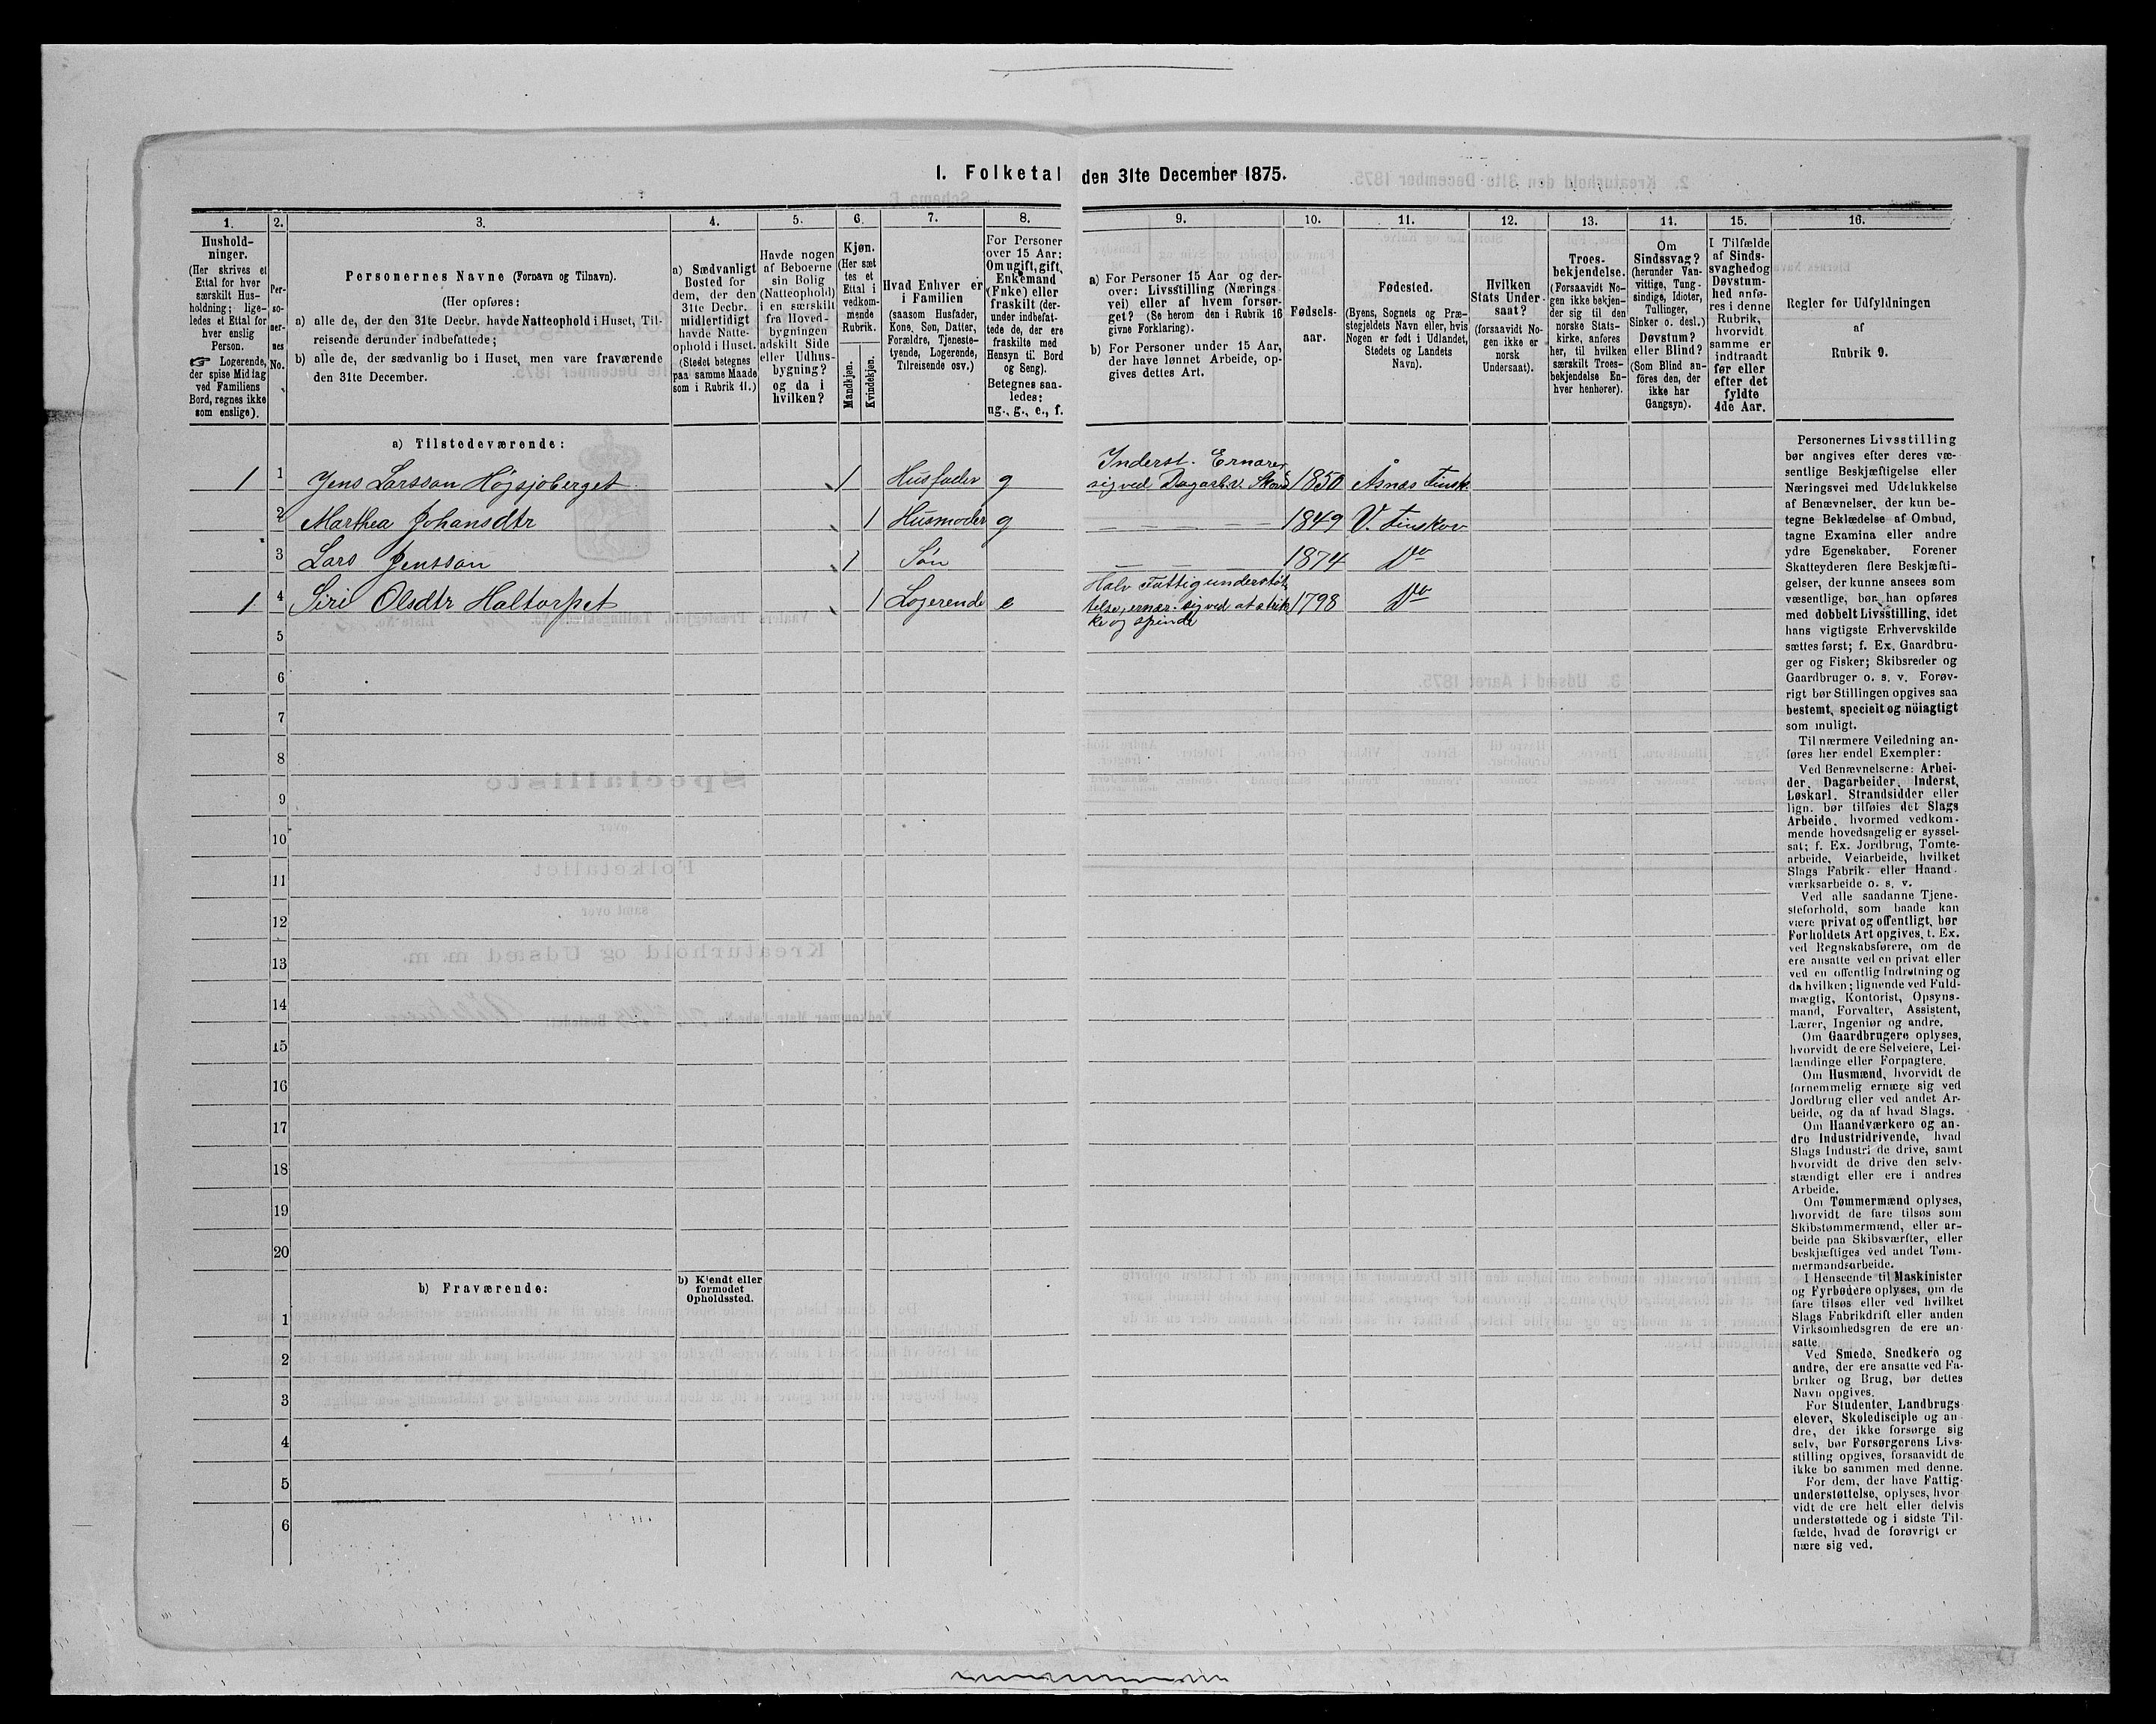 1. Folketal den 31te December 1875.
1.
Hushold-
ninger.
(Her skrives et
Ettal for hver
særskilt Hus-
holdning; lige-
ledes et Ettal for
hver enslig
Person.
☞ Logerende,
der spise Middag
ved Familiens
Bord, regnes ikke
som enslige).
2.
Per-
so-
ner-
nes
No.
3.
Personernes Navne (Fornavn og Tilnavn).
(Her opføres:
a) alle de, der den 31te Decbr. havde Natteophold i Huset, Til-
reisende derunder indbefattede;
b) alle de, der sædvanlig bo i Huset, men vare fraværende
den 31te December.
4.
a) Sædvanligt
Bosted for
dem, der den
31te Decbr.
midlertidigt
havde Natte-
ophold i Huset.
(Stedet betegnes
paa samme Maade
som i Rubrik 11.)
5.
Havde nogen
af Beboerne
sin Bolig
(Natteophold)
i en særskilt
fra Hoved-
bygningen
adskilt Side
eller Udhus-
bygning?
og da i
hvilken?
6.
Kjøn.
(Her sæt
tes et
Ettal i
vedkom-
mende
Rubrik.
Mandkjøn.
Kvindekjøn.
7.
Hvad Enhver er
i Familien
(saasom Husfader,
Kone, Søn, Datter,
Forældre, Tjeneste-
tyende, Logerende,
Tilreisende osv.)
8.
For Personer
over 15 Aar:
Om ugift, gift,
Enkemand
(Enke) eller
fraskilt (der-
under indbefat-
tede de, der ere
fraskilte med
Hensyn til Bord
og Seng).
Betegnes saa-
ledes:
ug., g., e., f.
9.
a) For Personer 15 Aar og der-
over: Livsstilling (Nærings
vei) eller af hvem forsør-
get? (Se herom den i Rubrik 16
givne Forklaring).
b) For Personer under 15 Aar,
der have lønnet Arbeide, op-
gives dettes Art.
10.
Fødsels-
aar.
11.
Fødested.
(Byens, Sognets og Præ-
stegjeldets Navn eller, hvis
Nogen er født i Udlandet,
Stedets og Landets
Navn).
12.
Hvilken
Stats Under-
saat?
(forsaavidt No-
gen ikke er
norsk
Undersaat).
13.
Troes-
bekjendelse.
(Forsaavidt No-
gen ikke bekjen-
der sig til den
norske Stats-
kirke, anføres
her, til hvilken
særskilt Troes-
bekjendelse En-
hver henhører).
14.
Om
Sindssvag?
(herunder Van-
vittige, Tung-
sindige, Idioter,
Tullinger,
Sinker o. desl.)
Døvstum?
eller Blind?
(Som Blind an-
føres den, der
ikke har
Gangsyn).
15.
I Tilfælde
af Sinds-
svaghed og
Døvstum-
hed anfø-
res i denne
Rubrik,
hvorvidt
samme er
indtraadt
før eller
efter det
fyldte
4de Aar.
16.
Regler for Udfyldningen
af
Rubrik 9.
a) Tilstedeværende:
1 1 Jens Larsson Högsjöberget 1 Husfader g Inderst. Ernærer sig ved Dagarb. v. Skov 1850 Åsnæs Finsk.
2 Marthea Johansdtr 1 Husmoder g 1849 V. Finskov
3 Lars Jensson 1 Søn 1874 Do
1 4 Siri Olsdtr Haltorpet 1 Logerende e Halv Fattigunderstøt telse, ernær. sig ved at strik ke og spinde 1798 Do
5
6
7
8
9
10
11
12
13
14
15
16
17
18
19
20
b) Fraværende:
b) Kjendt eller
formodet
Opholdssted.
1
2
3
4
5
6
Personernes Livsstilling
bør angives efter deres væ-
sentlige Beskjæftigelse eller
Næringsvei med Udelukkelse
af Benævnelser, der kun be-
tegne Beklædelse af Ombud,
tagne Examina eller andre
ydre Egenskaber. Forener
Skatteyderen flere Beskjæfti-
gelser, der kunne ansees som
væsentlige, bør han opføres
med dobbelt Livsstilling, idet
hans vigtigste Erhvervskilde
sættes først; f. Ex. Gaardbru-
ger og Fisker; Skibsreder og
Gaardbruger o. s. v. Forøv-
rigt bør Stillingen opgives saa
bestemt, specielt og nöiagtigt
som muligt.
Til nærmere Veiledning an-
føres her endel Exempler:
Ved Benævnelserne: Arbei-
der, Dagarbeider, Inderst,
Løskarl, Strandsidder eller
lign. bør tilføies det Slags
Arbeide, hvormed vedkom-
mende hovedsagelig er syssel-
sat; f. Ex. Jordbrug, Tomte-
arbeide, Veiarbeide, hvilket
Slags Fabrik- eller Haand-
værksarbeide o. s. v.
Ved alle saadanne Tjene-
steforhold, som baade kan
være privat og offentligt, bør
Forholdets Art opgives, t. Ex.
ved Regnskabsførere, om de
ere ansatte ved en privat eller
ved en offentlig Indretning og
da hvilken; lignende ved Fuld-
mægtig, Kontorist, Opsyns-
mand, Forvalter, Assistent,
Lærer, Ingeniør og andre.
Om Gaardbrugere oplyses,
hvorvidt de ere Selveiere, Lei-
lændinge eller Forpagtere.
Om Husmænd, hvorvidt de
fornemmelig ernære sig ved
Jordbrug eller ved andet Ar-
beide, og da af hvad Slags.
Om Haandværkere og an-
dre Industridrivende, hvad
Slags Industri de drive, samt
hvorvidt de drive den selv-
stændigt eller ere i andres
Arbeide.
Om Tømmermænd oplyses,
hvorvidt de fare tilsøs som
Skibstømmermænd, eller ar-
beide paa Skibsværfter, eller
beskjæftiges ved andet Tøm-
mermandsarbeide.
I Henseende til Maskinister
og Fyrbødere oplyses, om de
fare tilsøs eller ved hvilket
Slags Fabrikdrift eller anden
Virksomhedsgren de ere an-
satte.
Ved Smede, Snedkere og
andre, der ere ansatte ved Fa-
briker og Brug, bør dettes
Navn opgives.
For Studenter, Landbrugs
elever, Skoledisciple og an-
dre, der ikke forsørge sig
selv, bør Forsørgerens Livs-
stilling opgives, forsaavidt de
ikke bo sammen med denne.
For dem, der have Fattig-
understøttelse, oplyses, hvor
vidt de ere helt eller delvis
understøttede og i sidste Til-
fælde, hvad de forøvrigt er
nære sig ved.